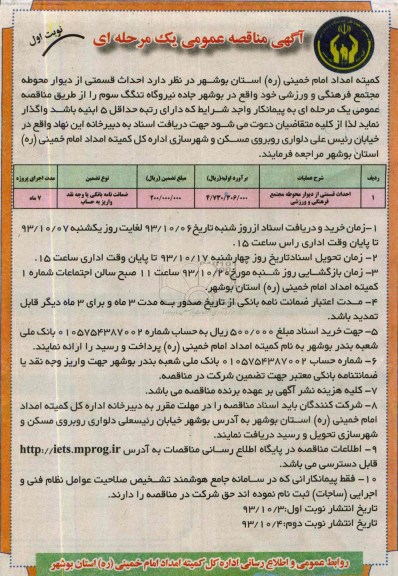 آگهی مناقصه عمومی یک مرحله ای
نوبت اول
کمیته امداد امام خمینی (ره) استان بوشهر در نظر دارد احداث قسمتی از دیوار محوطه
مجتمع فرهنگی و ورزشی خود واقع در بوشهر جاده نیروگاه تنگک سوم را از طریق مناقصه
عمومی یک مرحله ای به پیمانکار واجد شرایط که دارای رتبه حداقل ۵ ابنیه باشد واگذار
نماید لذا از کلیه متقاضیان دعوت می شود جهت دریافت اسناد به دبیرخانه این نهاد واقع در
خیابان رئیس علی دلواری روبروی مسکن و شهرسازی اداره کل کمیته امداد امام خمینی (ره)
استان بوشهر مراجعه فرمایند.
ردیف شرح عملیات برآورد اولیه(ریال) مبلغ تضمین (ریال) نوع تضمین مدت اجرای پروژه
۱ احداث قسمتی از دیوار محوطه مجتمع فرهنگی و ورزشی ۲/۷۳۰/۲۰۶/۰۰۰ ۲۰۰/۰۰۰/۰۰۰ ضمانت نامه بانکی یا وجه نقد واریز به حساب ۷ ماه
۱-زمان خرید و دریافت اسناد ازروز شنبه تاریخ ۹۳/۱۰/۰۶ لغایت روز یکشنبه ۹۳/۱۰/۰۷
تا پایان وقت اداری راس ساعت ۱۵.
۲- زمان تحویل اسنادتاریخ روز چهارشنبه ۹۳/۱۰/۱۷ تا پایان وقت اداری ساعت ۱۵.
۳- زمان بازگشایی روز شنبه مورخ ۹۳/۱۰/۲۰ ساعت ۱۱ صبح سالن اجتماعات شماره ۱
کمیته امداد امام خمینی (ره) استان بوشهر.
۴- مدت اعتبار ضمانت نامه بانکی از تاریخ صدور به مدت ۳ ماه و برای ۳ ماه دیگر قابل
تمدید باشد.
۵- جهت خرید اسناد مبلغ ۵۰۰/۰۰۰ ریال به حساب شماره ۰۱۰۵۷۵۴۳۸۷۰۰۲ بانک ملی
شعبه بندر بوشهر به نام کمیته امداد امام خمینی (ره) پرداخت و رسید را ارائه نمایند.
۶- شماره حساب ۰۱۰۵۷۵۴۳۸۷۰۰۲ بانک ملی شعبه بندر بوشهر جهت واریز وجه نقد یا
ضمانتنامه بانکی معتبر جهت تضمین شرکت در مناقصه.
۷- کلیه هزینه نشر آگهی بر عهده برنده مناقصه می باشد.
۸- شرکت کنندگان باید اسناد مناقصه را در مهلت مقرر به دبیرخانه اداره کل کمیته امداد
امام خمینی (ره) استان بوشهر به آدرس بوشهر خیابان رئیسعلی دلواری روبروی مسکن و
شهرسازی تحویل و رسید دریافت نمایند.
۹- اطلاعات مناقصه در پایگاه اطلاع رسانی مناقصات به آدرس http://iets.mprog.ir
قابل دسترسی می باشد.
۱۰- فقط پیمانکارانی که در سامانه جامع هوشمند تشخیص صلاحیت عوامل نظام فنی و
اجرایی (ساجات) ثبت نام نموده اند حق شرکت در مناقصه را دارند.
تاریخ انتشار نوبت اول:۹۳/۱۰/۳
تاریخ انتشار نوبت دوم:۹۳/۱۰/۴
روابط عمومی و اطلاع رسانی اداره کل کمیته امداد امام خمینی (ره) استان بوشهر